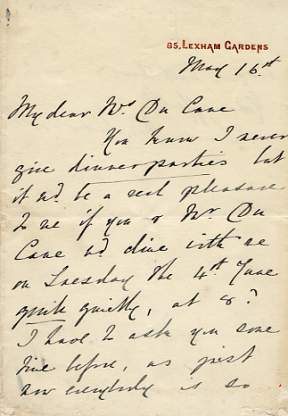 85, LEXHAM GARDENS
May 16th
My dear Mrs Du Cane
You know I never
give dinner parties but
it wd be a real pleasure
to me if you & Mr Du
Cane wd dine with me
on Tuesday the 4th June
quite quietly, at 8?
I have to ask you some
time before, as just
now everybody is so